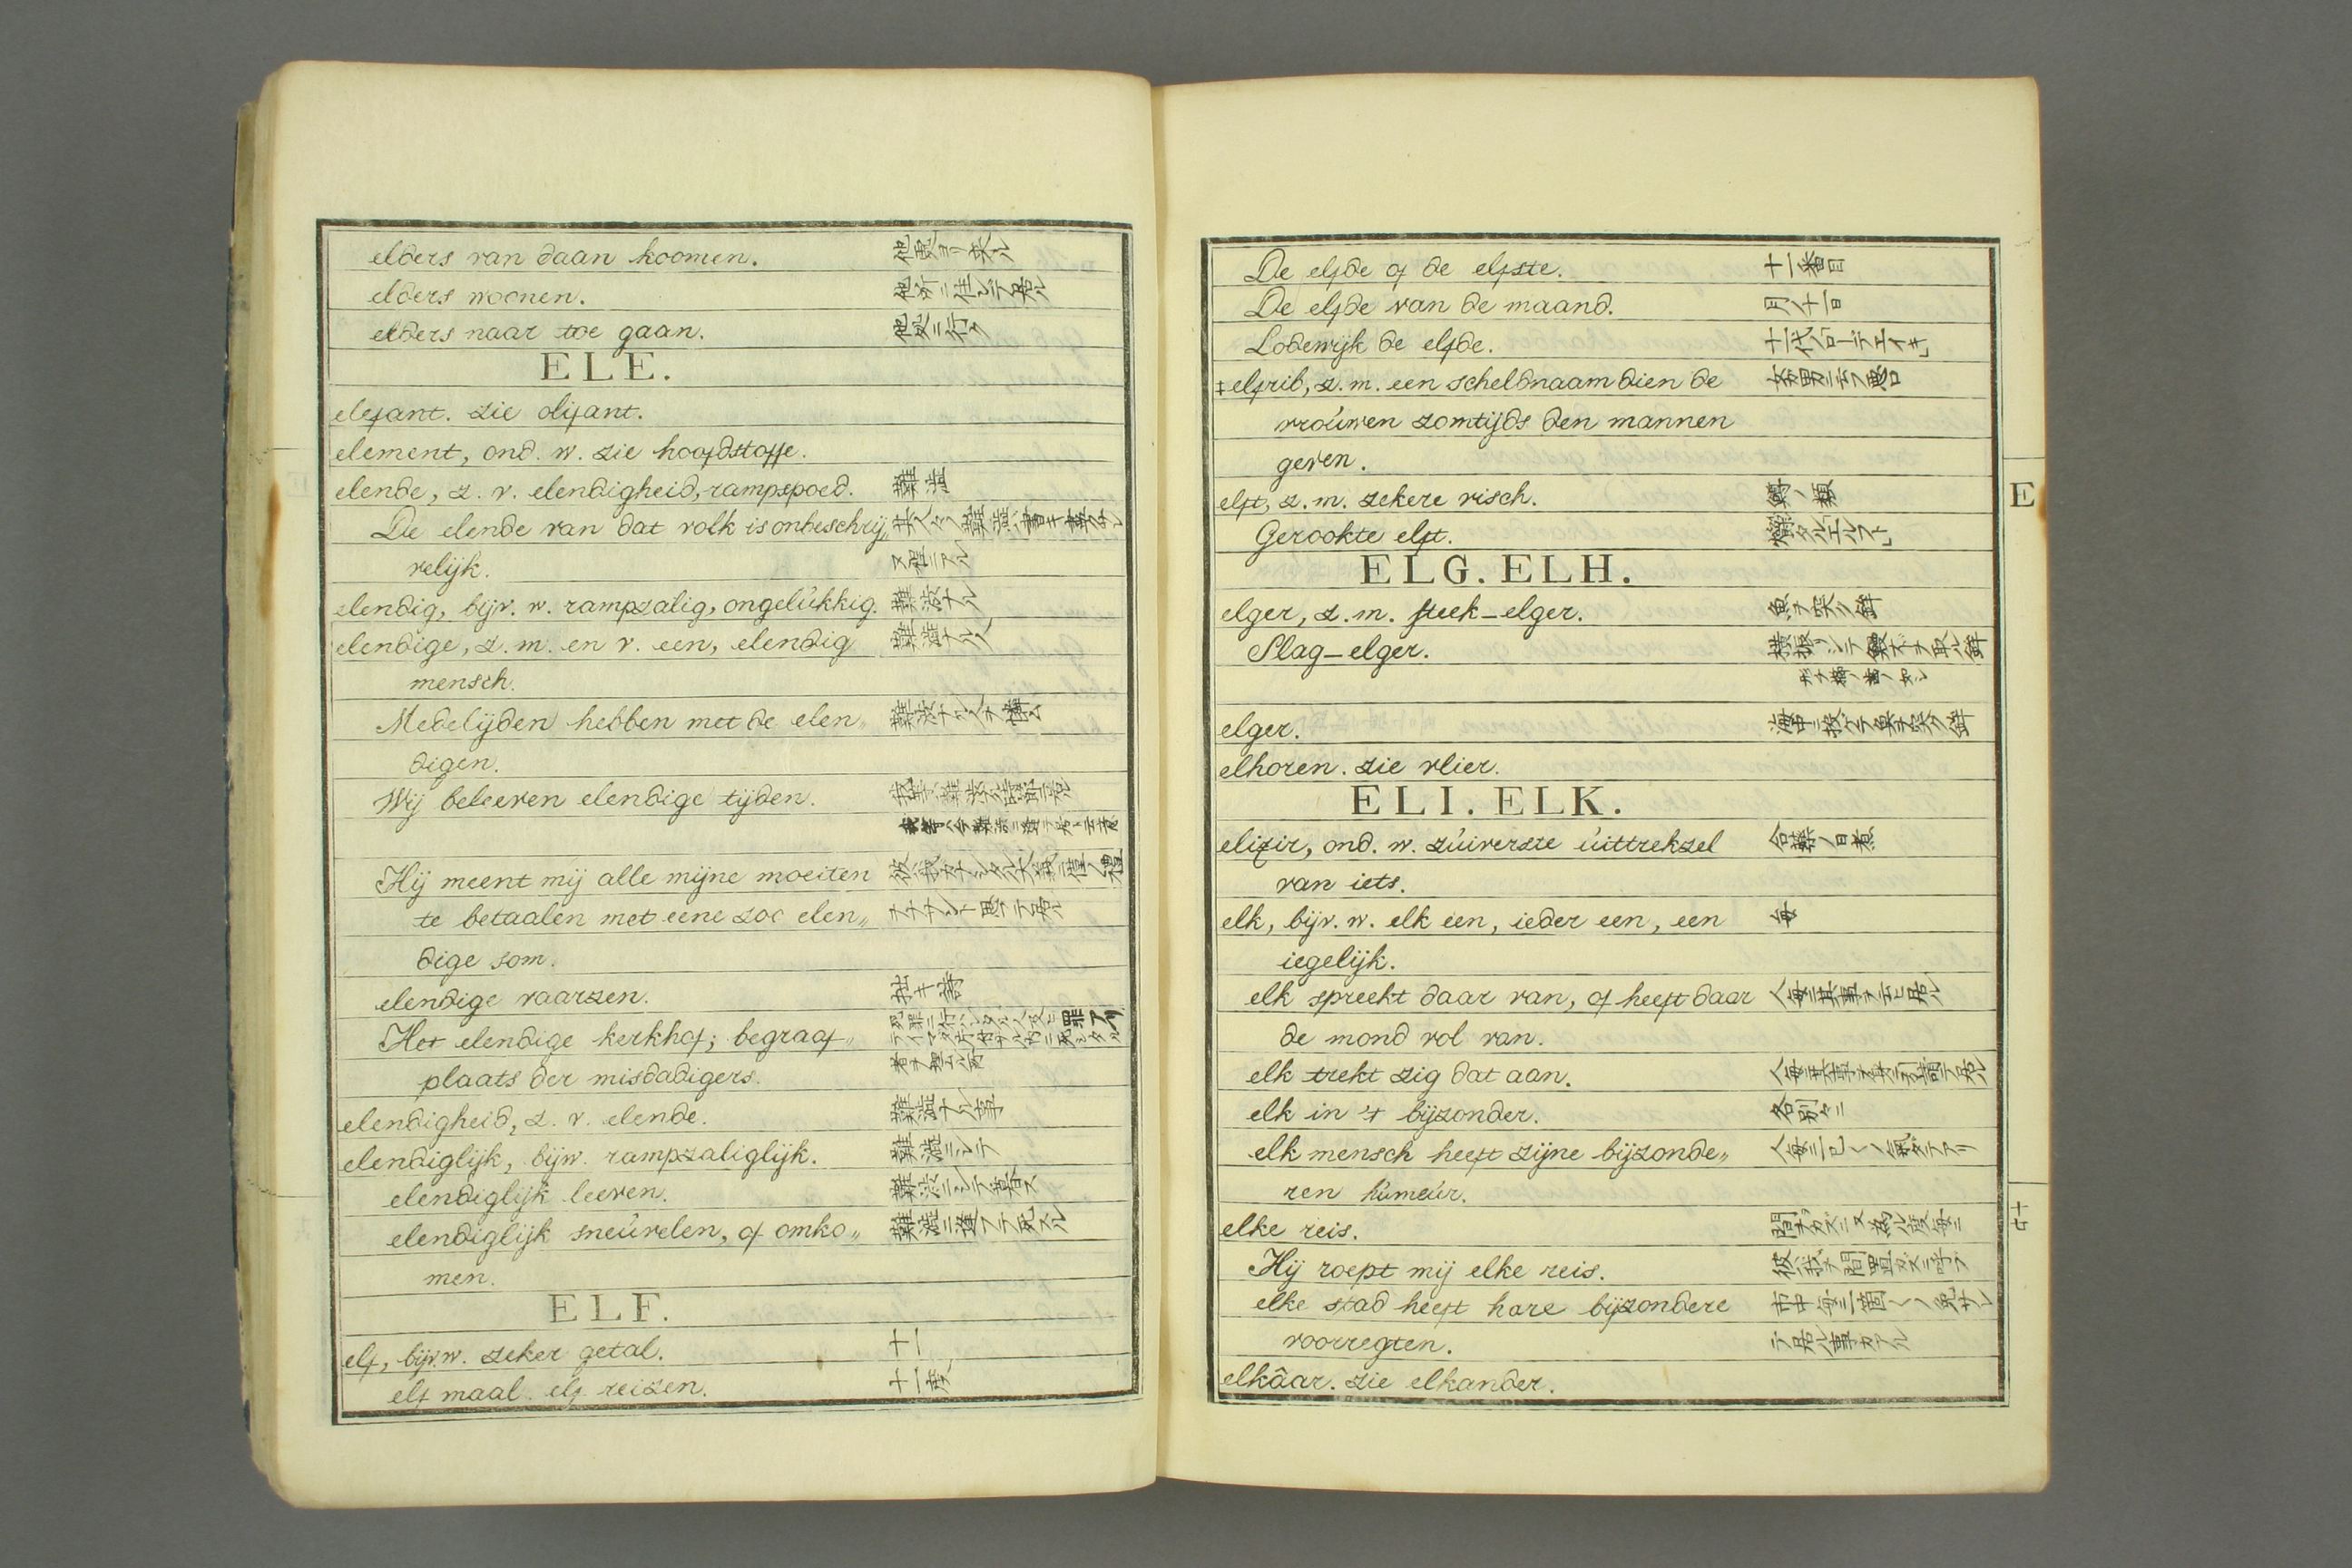 elders van daan koomen. 他處ヨリ来ル
elders woonen. 他所ニ住シテ居ル
elders naar toe gaan. 他処ニ行ク
ELE.
elefant. zie olifant.
element, ond. w. zie hoofdstoffe.
elende, z. v. elendigheid, rampspoed. 難渋
De elende van dat volk is onbeschrij„
velijk.
elendig, bijv. w. rampzalig, ongelúkkig. 難渋ナル
elendige, z. m. en v. een, elendig 難渋ナル人
mensch.
Medelijden hebben met de elen„ 難渋ナル人ヲ憐ム
digen.
Wij beleeven elendige tijden.
Hij meent mij alle mijne moeiten
te betaalen met eene zoo elen„
dige som.
elendige vaarzen. 拙キ詩
Het elendige kerkhof; begraaf„
plaats der misdadigers.
elendigheid, z. v. elende. 難渋ナル事
elendiglijk, bijw. rampzaliglijk. 難渋ニシテ
elendiglijk leeven. 難渋ニシテ暮ス
elendiglijk sneúvelen, of omko„ 難渋ニ逢フテ死スル
men.
ELF.
elf, bijv. w. zeker getal. 十一
elf maal. elf reizen. 十一度
De elfde of de elfste. 十一番目
De elfde van de maand. 月ノ十一日
Lodewijk de elfde.
‡elfrib, z. m. een scheldnaam dien de
vroúwen zomtijds den mannen
geven.
elft, z. m. zekere visch. 鱒ノ類
Gerookte elft.
ELG. ELH.
elger, z. m. steek-elger. 魚ヲ突ク鉾
Slag-elger.
形チ櫛ノ歯ノ如シ
elger. 海中ニ投ケテ魚ヲ突ク鉾
elhoren. zie vlier.
ELI. ELK.
elixir, ond. w. zúiverste úittrekzel
van iets.
elk, bijv. w. elk een, ieder een, een 毎
iegelijk.
elk spreekt daar van, of heeft daar 人毎ニ其事ヲ云ヒ居ル
de mond vol van.
elk trekt zig dat aan.
elk in 't bijzonder. 各別々ニ
elk mensch heeft zijne bijzonde„
ren húmeúr.
elke reis.
Hij roept mij elke reis. 彼ハ我ヲ間置カズニ呼フ
elke stad heeft hare bijzondere
voorregten.
elkâar. zie elkander.
E